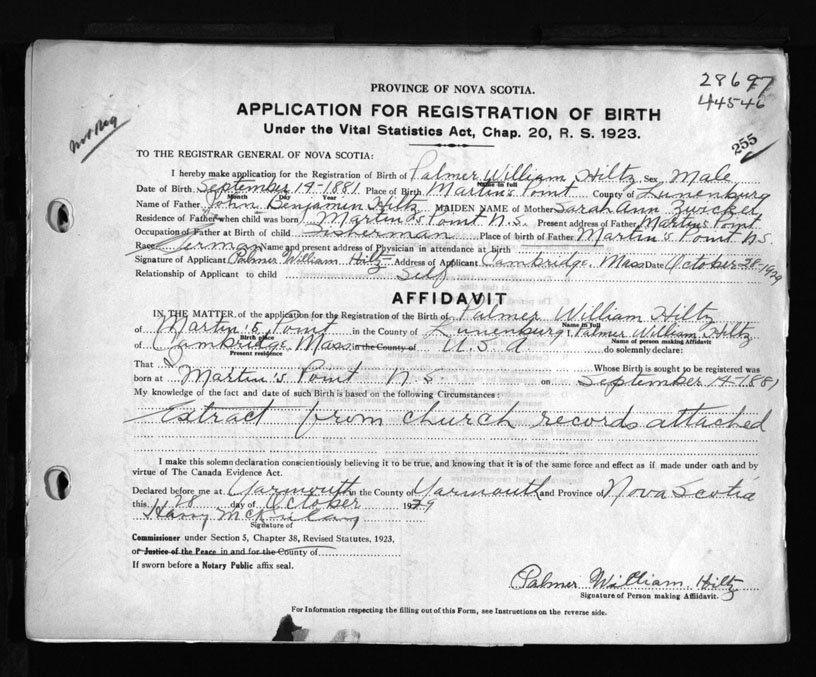 28697
44546
255
Not Reg
PROVINCE OF NOVA SCOTIA.
APPLICATION FOR REGISTRATION OF BIRTH
Under the Vital Statistics Act, Chap. 20, R. S. 1923.
TO THE REGISTRAR GENERAL OF NOVA SCOTIA:
I hereby make application for the Registration of Birth of Palmer William Hiltz Sex Male
Name in full
Date of Birth September 14-1881 Place of Birth Martin's Point County of Lunenburg
Month Day Year
Name of Father John Benjamin Hiltz MAIDEN NAME of Mother Sarah Ann Zwicker
Residence of Father when child was born Martin's Point N.S. Present address of Father Martin's Point
Occupation of Father at Birth of child Fisherman Place of birth of Father Martin's Point N.S.
Race German Name and present address of Physician in attendance at birth
Signature of Applicant Palmer William Hiltz Address of Applicant Cambridge, Mass Date October 28-1929
Relationship of Applicant to child Self
AFFIDAVIT
IN THE MATTER, of the application for the Registration of the Birth of Palmer William Hiltz
Name in full
of Martin's Point in the County of Lunenburg I, Palmer William Hiltz
Birth place Name of person making Affidavit
of Cambridge Mass in the County of U.S.A. do solemnly declare:
Present residence
That I Whose Birth is sought to be registered was
born at Martin's Point N.S. on September 14-1881
My knowledge of the fact and date of such Birth is based on the following Circumstances:
Extract from church records attached
I make this solemn declaration conscientiously believing it to be true, and knowing that it is of the same force and effect as if made under oath and by
virtue of The Canada Evidence Act.
Declared before me at Yarmouth in the County of Yarmouth and Province of Nova Scotia
this 28 day of October 1929
Harry
Signature of
Commissioner under Section 5, Chapter 38, Revised Statutes, 1923,
or Justice of the Peace in and for the County of
If sworn before a Notary Public affix seal.
Palmer William Hiltz
Signature of Person making Affidavit.
For Information respecting the filling out of this Form, see Instructions on the reverse side.